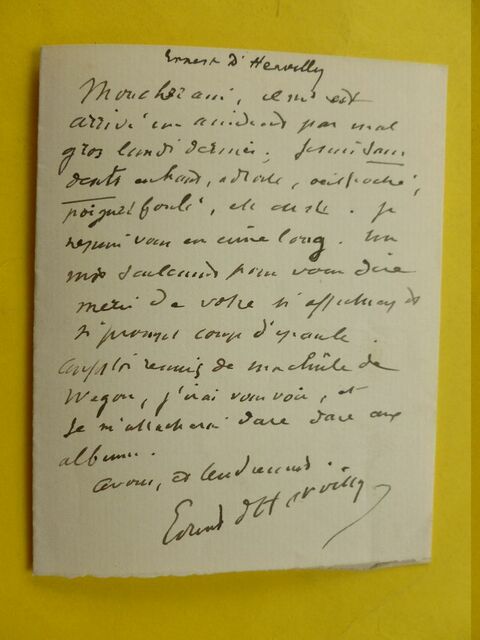 Ernest D'Hervilly
Mon cher ami, il m'est
arrivé un accident pas mal
gros lundi dernier. Je suis sans
dents en haut, à droite, œil poché,
poignet foulé, etc etc. Je
ne puis vous en écrire long. Un
mot seulement pour vous dire
merci de votre si affectueux et
si prompt coup d'épaule.
Aussitôt remis de ma chûte de
Wagon, j'irai vous voir, et
je m'attacherai dare dare aux
albums.
à vous, et tendrement.
Ernest d'Hervilly